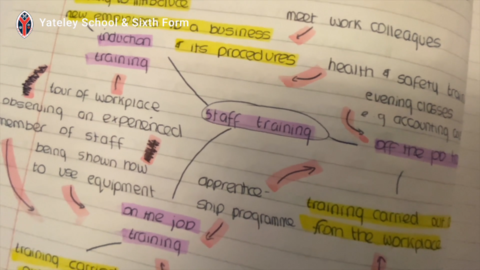 Yateley School & Sixth Form
to introduce
to a business
& its procedures
induction
training
meet work colleagues
health & safety
evening classes
e.g accounting
off the
tour of workplace
observing an experienced
member of staff
being shown how
to use equipment
staff training
apprentice-
ship programme
training carried out
from the workplace
on the job
training
training carried